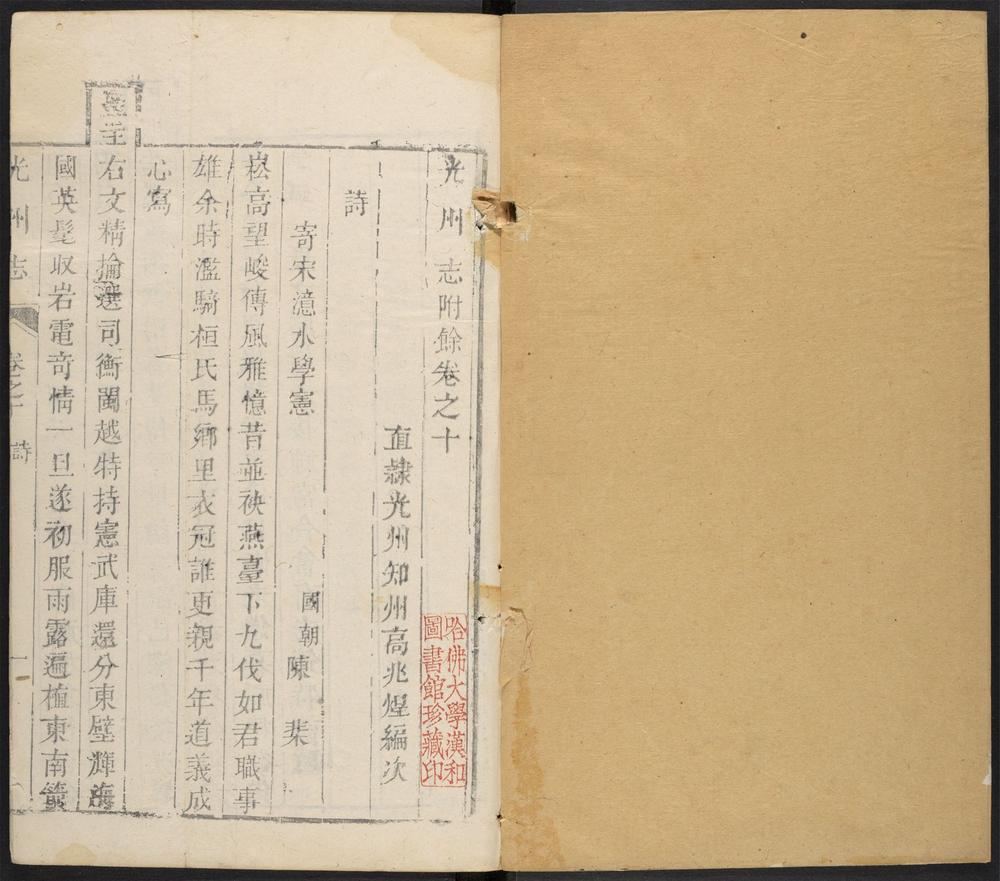 光州志附餘卷之十
直隷光州知州高兆煌編次
詩
寄宋澺水學憲
國朝陳棐
崧高望峻傳風雅憶昔並袂燕臺下九伐如君職事
雄余時濫騎桓氏馬鄉里衣冠誰更親千年道義成
心寫
聖主
右文精掄選司衡閩越特持憲武庫還分東壁輝海
國英髦収岩電竒情一旦遂初服雨露遍植東南箭
光州志
卷之十
詩
一
哈佛大學漢和
圖書館珍藏印